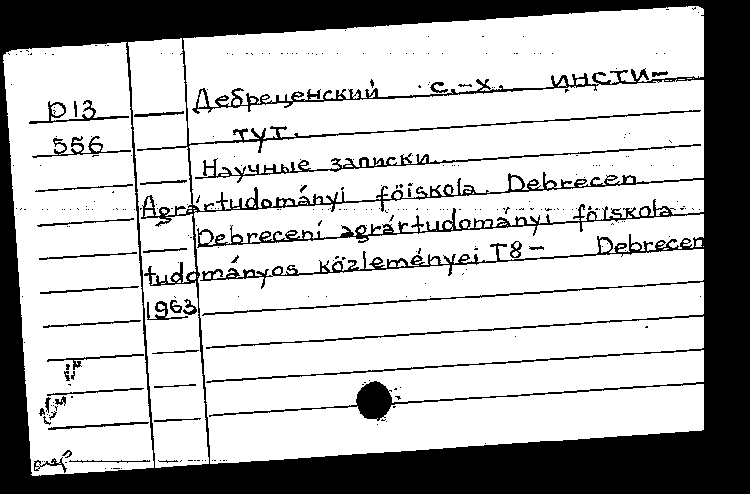 D13
556
Дебреценский с.-х. инсти-
тут.
Научные записки.
Agrártudományi föiskola. Debrecen
Debreceni agrártudományi föiskola
tudományos közleményei. T8- Debrecen
1963